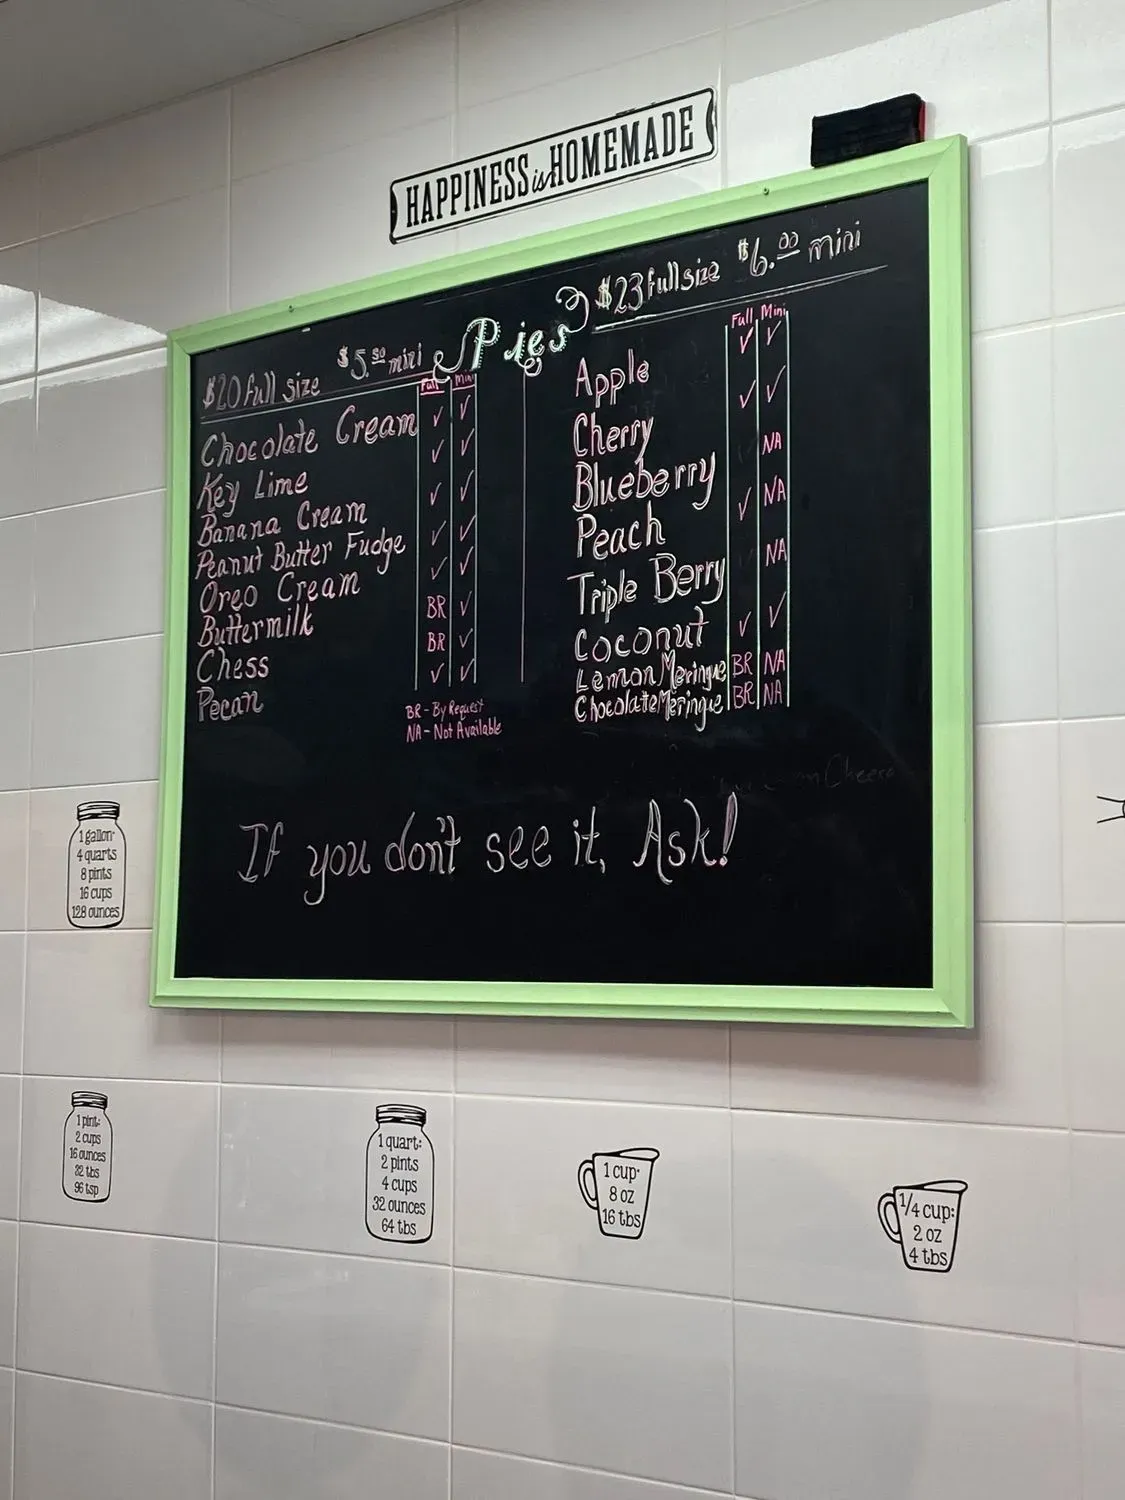 HAPPINESS is HOMEMADE
Pies
$20 full size $5.50 mini
Full Mini
Chocolate Cream ✓ ✓
Key Lime ✓ ✓
Banana Cream ✓ ✓
Peanut Butter Fudge ✓ ✓
Oreo Cream ✓ ✓
Buttermilk BR ✓
Chess BR ✓
Pecan ✓ ✓
BR - By Request
NA - Not Available
$23 full size $6.00 mini
Full Mini
Apple ✓ ✓
Cherry ✓ ✓
Blueberry NA
Peach ✓ NA
Triple Berry NA
Coconut ✓ ✓
Lemon Meringue BR NA
Chocolate Meringue BR NA
If you don't see it, Ask!
1 gallon:
4 quarts
8 pints
16 cups
128 ounces
1 pint:
2 cups
16 ounces
32 tbs
96 tsp
1 quart:
2 pints
4 cups
32 ounces
64 tbs
1 cup:
8 oz
16 tbs
1/4 cup:
2 oz
4 tbs